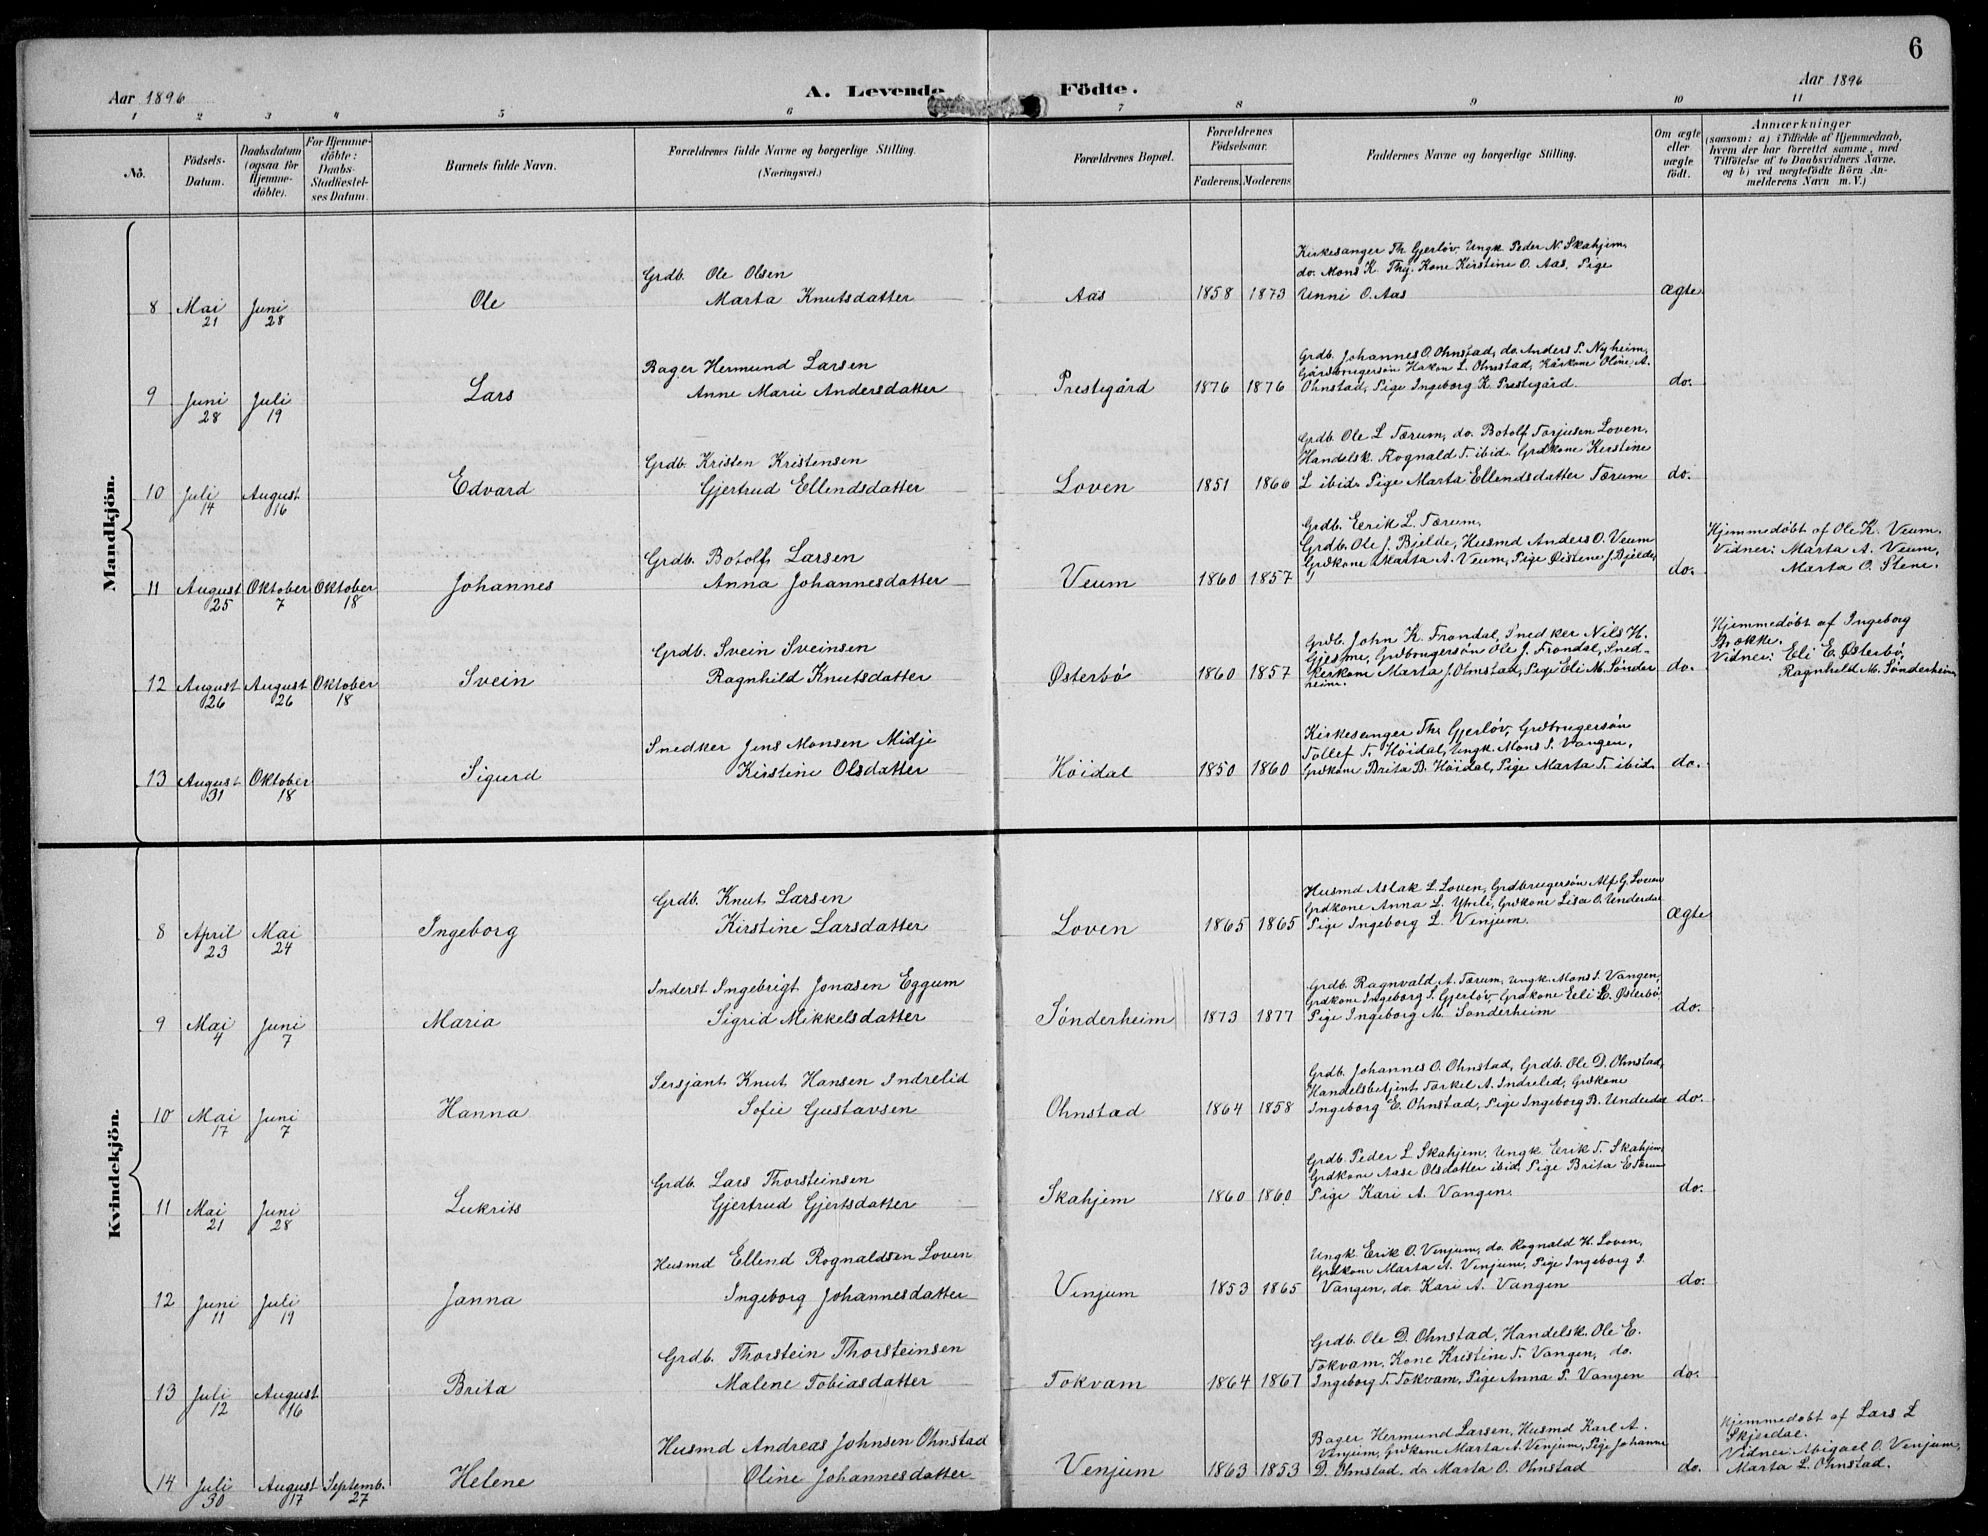 6
Aar 1896
A. Levende Födte.
Aar 1896
1 2 3 4 5 6 7 8 9 10 11
No.
Födsels-
Datum.
Daabsdatum
(ogsaa for
Hjemme-
döbte).
For Hjemme-
döbte:
Daabs-
Stadfæstel-
ses Datum.
Barnets fulde Navn.
Forældrenes fulde Navne og borgerlige Stilling.
(Næringsvei.)
Forældrenes Bopæl.
Forældrenes
Födselsaar.
Faderens. Moderens
Faddernes Navne og borgerlige Stilling.
Om ægte
eller
uægte
födt.
Anmærkninger
(saasom: a) i Tilfælde af Hjemmedaab,
hvem der har forrettet samme, med
Tilföielse af to Daabsvidners Navne.
og b) ved uægtefödte Börn An-
melderens Navn m. V.)
Mandkjön.
Kirkesanger Th Gjerløv, Ungk. Peder N. Skahjem,
Grdb. Ole Olsen
do. Mons K. Thy. Kone Kirstine O. Aas, Pige
8 Mai 21 Juni 28 Ole Marta Knutsdatter Aas 1858 1873 Unni O. Aas ægte
Grdb. Johannes O. Ohnstad, do. Anders P. Nyheim,
Bager Hermund Larsen
Gårdbrugersøn Hakon L. Ohnstad, Kårkone Oline A.
9 Juni 28 Juli 19 Lars Anne Marie Andersdatter Prestegård 1876 1876 Ohnstad, Pige Ingeborg K. Prestegård do.
Grdb. Ole L. Tærum, do. Botolf Torjusen Loven,
Grdb. Kristen Kristensen
Handelsk. Rognald T. ibid. Grdkone Kirstine
10 Juli 14 August 16 Edvard Gjertrud Ellendsdatter Loven 1851 1866 L ibid. Pige Marta Ellendsdatter Tærum do.
Grdb. Eerik L. Tærum,
Grdb. Botolf Larsen
Grdb. Ole J. Bjelde, Husmd Anders O. Veum
Grdkone Marta A. Veum, Pige Øistene J. Bjelde,
11 August 25 Oktober 7 Oktober 18 Johannes Anna Johannesdatter Veum 1860 1857 do.
Hjemmedøbt af Ole K. Veum.
Vidner: Marta A. Veum,
Marta O. Stene.
Grdb. John K. Frondal, Snedker Nils H.
Grdb. Svein Sveinsen
Gjesme, Grdbrugersøn Ole J. Frondal, Sned-
12 August 26 August 26 Oktober 18 Svein Ragnhild Knutsdatter Østerbø 1860 1857 kerkone Marta J. Ohnstad, Pige Eli M. Sønder do.
heim.
Hjemmedøbt af Ingeborg
Brække.
Vidner: Eli E. Østerbø,
Ragnhild M. Sønderheim
Kirkesanger Th. Gjerløv, Grdbrugersøn
Snedker Jens Monsen Midje
Tollef T. Høidal, Ungk. Mons S. Vangen,
13 August 31 Oktober 18 Sigurd Kirstine Olsdatter Høidal 1850 1860 Grdkone Brita B. Høidal, Pige Marta T. ibid. do.
Kvindekjön.
Husmd Aslak L. Loven, Grdbrugersøn Alf G. Loven
Grdb. Knut Larsen
Grdkone Anna L. Ytreli, Grdkone Lisa O. Underdal
8 April 23 Mai 24 Ingeborg Kirstine Larsdatter Loven 1865 1865 Pige Ingeborg L. Venjum. ægte
Grdb. Ragnvald A. Tærum, Ungk. Mons S. Vangen,
Inderst Ingebrigt Jonasen Eggum
Grdkone Ingeborg S. Gjerløv, Grdkone Eeli E. Østerbø
9 Mai 4 Juni 7 Maria Sigrid Mikkelsdatter Sønderheim 1873 1877 Pige Ingeborg M. Sønderheim do.
Grdb. Johannes O. Ohnstad, Grdb. Ole D. Ohnstad,
Sersjant Knut Hansen Indrelid
Handelsbetjent Torkel A. Indrelid, Grdkone
10 Mai 17 Juni 7 Hanna Sofie Gustavsen Ohnstad 1864 1858 Ingeborg E. Ohnstad, Pige Ingeborg B. Underdal do.
Grdb. Peder L Skahjem, Ungk. Erik T. Skahjem,
Grdb. Lars Thorsteinsen
Grdkone Aase Olsdatter ibid. Pige Brita E Tærum
11 Mai 21 Juni 28 Lukrits Gjertrud Gjertsdatter Skahjem 1860 1860 Pige Kari A. Vangen. do.
Ungk. Erik O. Venjum, do. Rognald H. Loven,
Husmd Ellend Rognaldsen Loven
Grdkone Marta A. Venjum, Pige Ingeborg S.
12 Juni 11 Juli 19 Janna Ingeborg Johannesdatter Vinjum 1853 1865 Vangen, do. Kari A. Vangen do.
Grdb. Ole D. Ohnstad, Handelsk. Ole E.
Grdb. Thorstein Thorsteinsen
Tokvam, Kone Kristine T. Vangen, do.
13 Juli 12 August 16 Brita Malene Tobiasdatter Tokvam 1864 1867 Ingeborg T. Tokvam, Pige Anna P. Vangen do.
Bager Hermund Larsen, Husmd Karl A.
Husmd Andreas Johnsen Ohnstad
Venjum, Grdkone Marta A. Venjum, Pige Johanne
14 Juli 30 August 17 Septemb. 27 Helene Oline Johannesdatter Venjum 1863 1853 D. Ohnstad, do Marta O. Ohnstad do.
Hjemmedøbt af Lars L
Skjerdal.
Vidner: Abigael O. Venjum,
Marta L. Ohnstad.